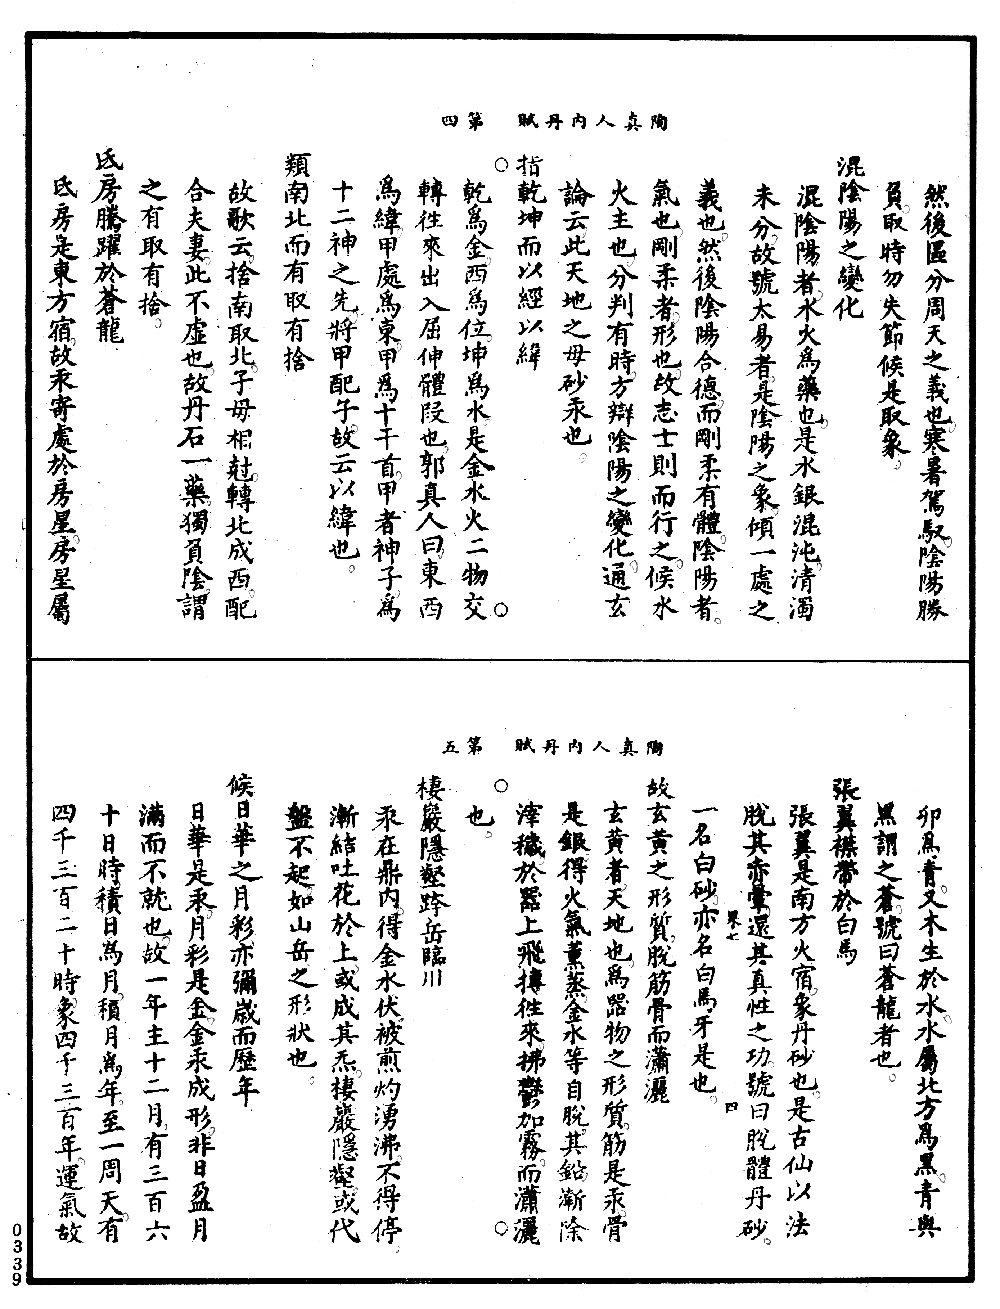 陶真人內丹賦　第四
然後區分周天之義也。寒暑駕馭。陰陽勝
負。取時勿失節候是取象。
混陰陽之變化
混陰陽者。水火為藥也。是水銀混沌清濁
未分。故號太易者。是陰陽之象。傾一處之
義也。然後陰陽合德。而剛柔有體。陰陽者。
氣也。剛柔者。形也。故志士則而行之。候水
火主也。分判有時。方辯陰陽之變化。通玄
論云此天地之母砂汞也。
指乾坤而以經以緯
乾為金。西為位。坤為水。是金水火二物交
轉往來出入屈伸體段也。郭真人曰。東西
為緯。甲處為東。甲為十干首。甲者神子。為
十二神之先。將甲配子。故云以緯也。
類南北而有取有捨
故歌云。捨南取北。子母相尅。轉北成西。配
合夫妻。此不虛也。故丹石一藥。獨負陰。謂
之有取有捨。
氐房騰躍於蒼龍
氐房是東方宿。故汞寄處於房星。房星屬
陶真人內丹賦　第五
卯為青。又木生於水。水屬北方為黑。青與
黑謂之蒼。號曰蒼龍者也。
張翼襟帶於白馬
張翼是南方火宿。象丹砂也。是古仙以法
脫其亦暈。還其真性之功。號曰脫體丹砂。
一名白砂。亦名白馬牙是也。
果七　四
故玄黃之形質。脫筋骨而瀟灑
玄黃者。天地也。為器物之形質。筋是汞。骨
是銀。得火氣薰蒸。金水等自脫。其鉛漸除
滓穢於器上。飛摶往來拂鬱。加霧。而瀟灑
也。
棲巖隱壑跨岳臨川
汞在鼎內。得金水伏。被煎灼湧沸。不得停。
漸結吐花於上。或成其炁。棲巖隱壑。或代
盤不起。如山岳之形狀也。
候日華之月彩。亦彌歲而歷年
日華是汞。月彩是金。金汞成形。非日盈月
滿而不就也。故一年主十二月。有三百六
十日時。積日為月。積月為年。至一周天。有
四千三百二十時。象四千三百年。運氣故
0339